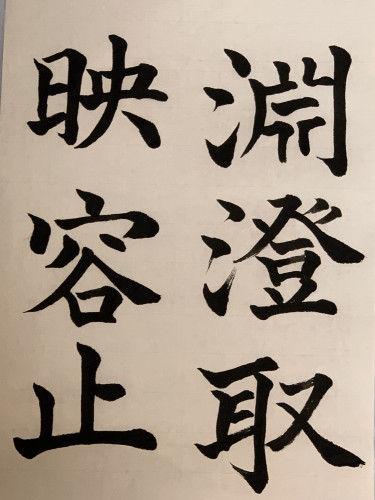 淵澄取
映容止